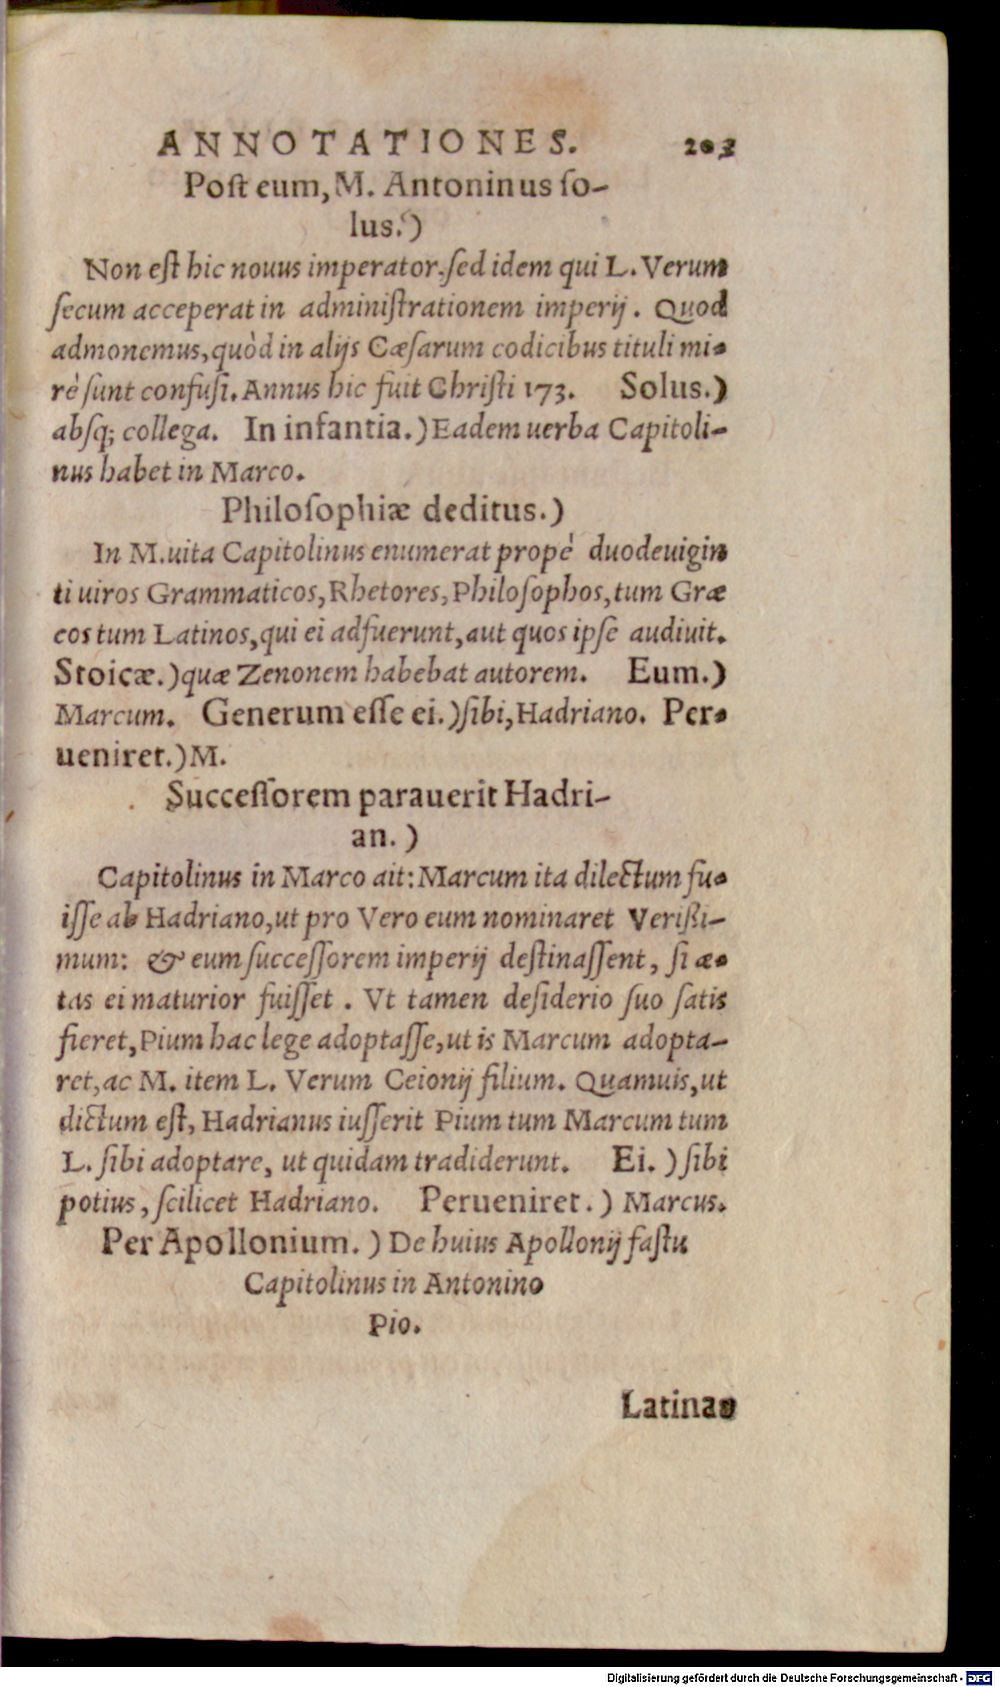 ANNOTATIONES. 203
Post eum, M. Antoninus so-
lus.)
Non est hic nouus imperator, sed idem qui L. Verum
secum acceperat in administrationem imperij. Quod
admonemus, quòd in alijs Cæsarum codicibus tituli mi-
rè sunt confusi. Annus hic fuit Christi 173. Solus.)
absq; collega. In infantia.) Eadem uerba Capitoli-
nus habet in Marco.
Philosophiæ deditus.)
In M. uita Capitolinus enumerat propè duodeuigin
ti uiros Grammaticos, Rhetores, Philosophos, tum Græ
cos tum Latinos, qui ei adfuerunt, aut quos ipse audiuit.
Stoicæ.) quæ Zenonem habebat autorem. Eum.)
Marcum. Generum esse ei.) sibi, Hadriano. Per-
ueniret.) M.
Successorem parauerit Hadri-
an.)
Capitolinus in Marco ait: Marcum ita dilectum fu-
isse ab Hadriano, ut pro Vero eum nominaret Verißi-
mum: & eum successorem imperij destinassent, si æ-
tas ei maturior fuisset. Vt tamen desiderio suo satis
fieret, Pium hac lege adoptasse, ut is Marcum adopta-
ret, ac M. item L. Verum Ceionij filium. Quamuis, ut
dictum est, Hadrianus iusserit Pium tum Marcum tum
L. sibi adoptare, ut quidam tradiderunt. Ei.) sibi
potius, scilicet Hadriano. Perueniret.) Marcus.
Per Apollonium.) De huius Apollonij fastu
Capitolinus in Antonino
Pio.
Latinas
Digitalisierung gefördert durch die Deutsche Forschungsgemeinschaft - DFG